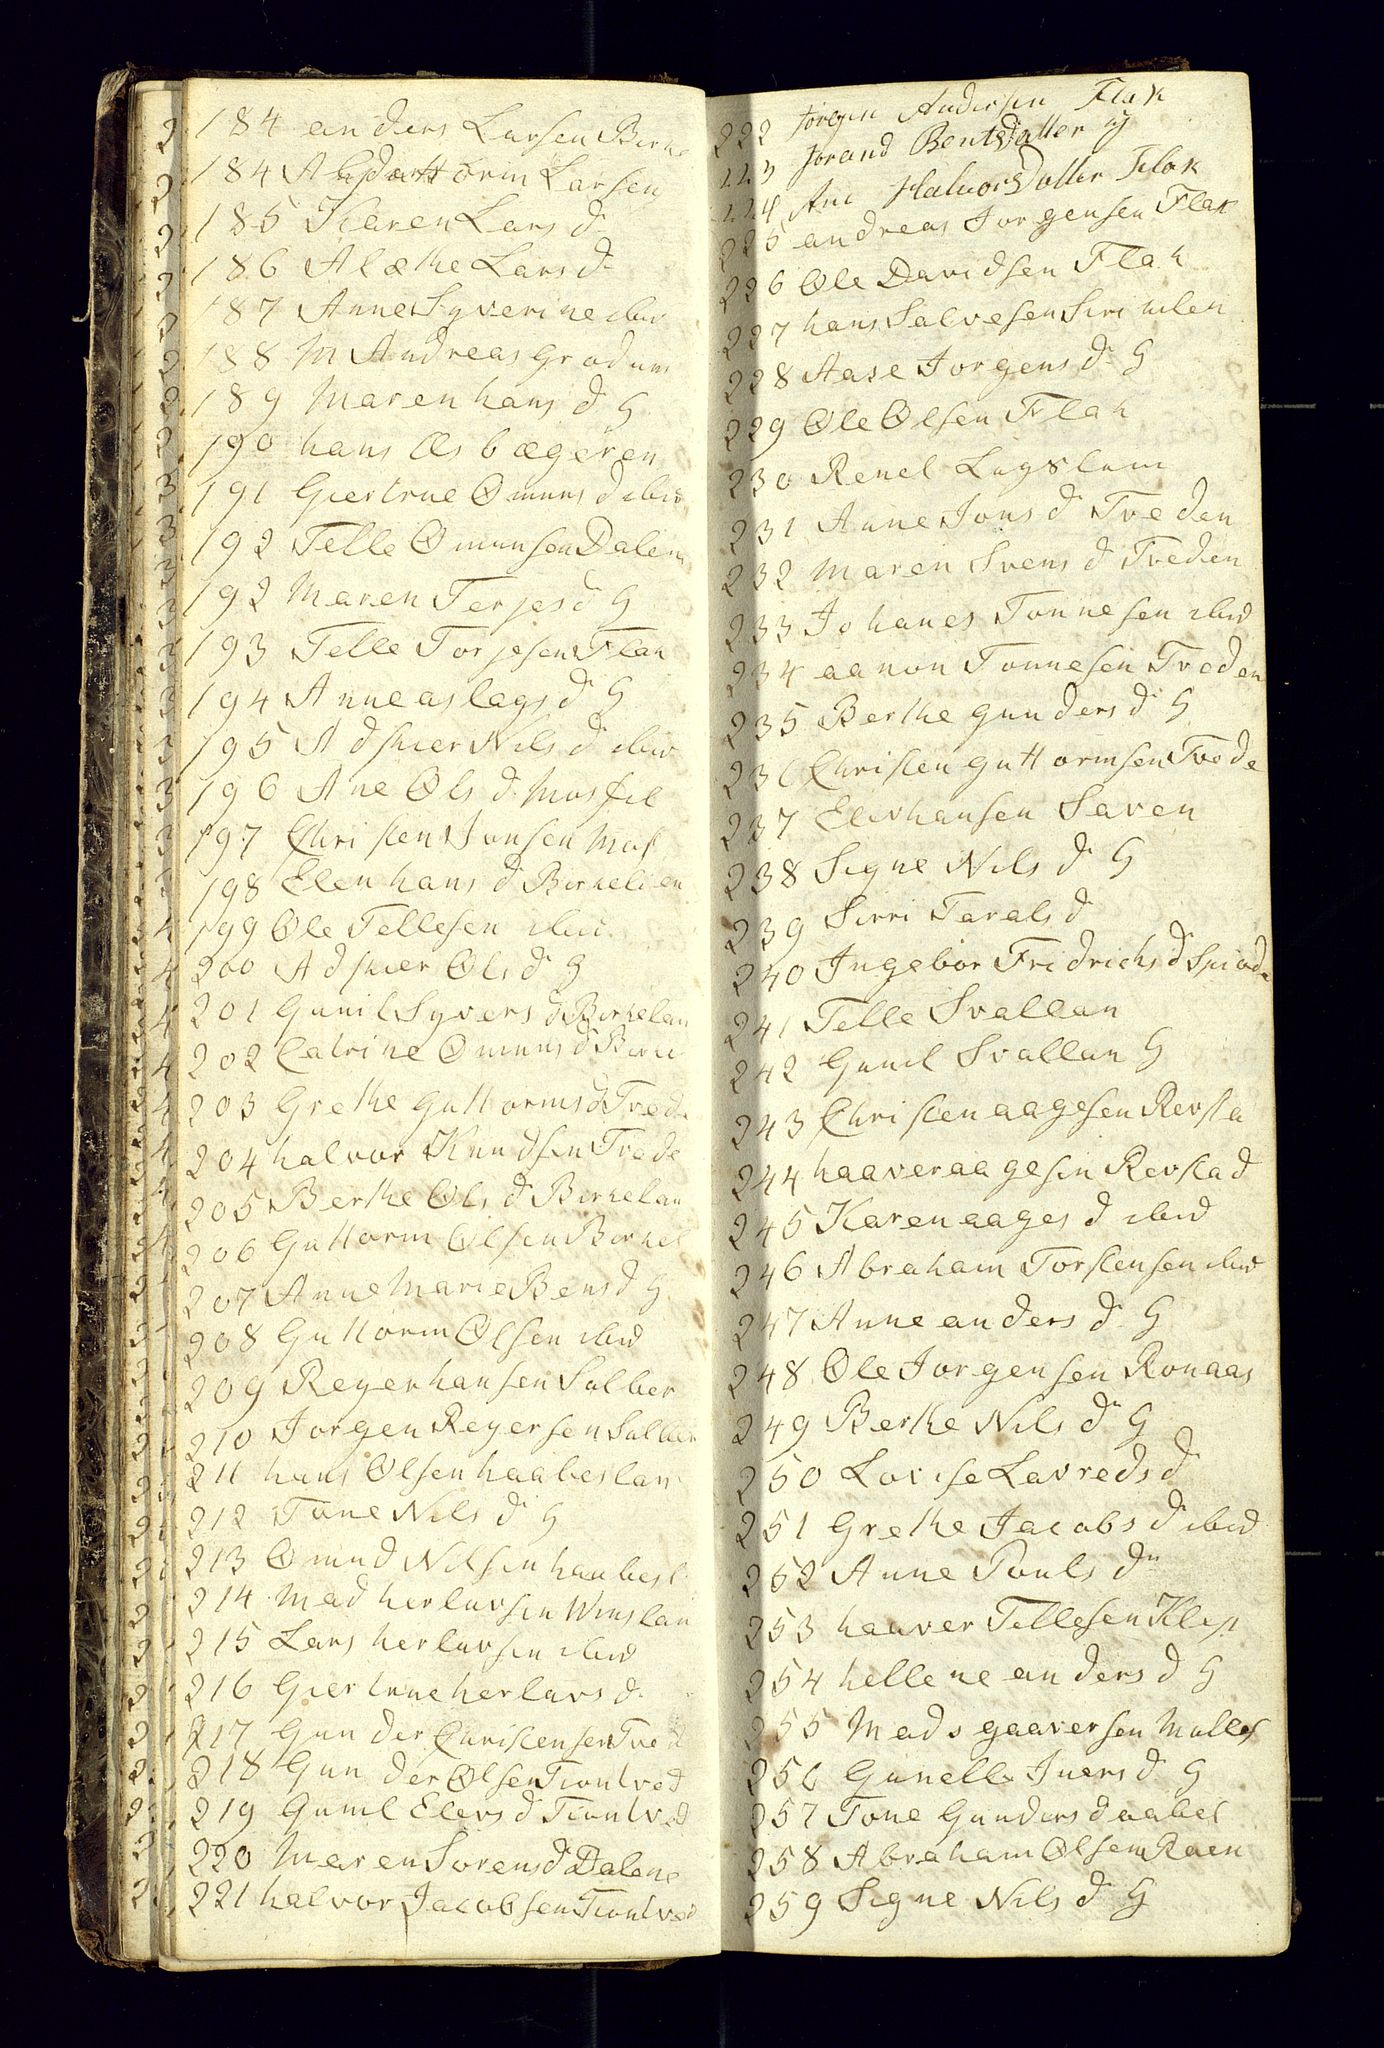 184 anders Larsen Birke
184 Larsen
185 Karen Lars d
186 Alethe Lars d
187 Anne Syverine ibid
188 M Andreas Grodum
189 Maren hans d G
190 hans Æsbægeren
191 Giertrue Omuns d ibid
192 Telle Omunsen Dalen
192 Maren Terjes d G
193 Telle Torjesen Flak
194 Anne aslags d G
195 Adsker Nils d ibid
196 Ane Ols d Mosfil
197 Christen Jonsen Mosf
198 Elen hans d Birkelien
199 Ole Tellesen ibid
200 Adsker Ols d G
201 Gunil Syvers d Birkelan
202 Catrine Omuns d Birke
203 Grethe Guttorms d Trede
204 halvor Knudsen Trede
205 Berthe Ols d Birkelan
206 Guttorm Olsen Birkel
207 Anne Marie Bens d G
208 Guttorm Olsen ibid
209 Reyer hansen Salber
210 Jorgen Reyersen Salber
211 hans Olsen haabeslan
212 Tone Nils d G
213 Omund Nilsen haabesl
214 Mad herlufsen Winslan
215 Lars herlufsen ibid
216 Giertrue herlavs d
217 Gunder Christensen Tved
218 Gunder Olsen Tiontved
219 Gunil Elevs d Tiontved
220 Maren Sorens d Dalene
221 halvor Jacobsen Tiontved
222 Jorgen Andersen Flak
223 Jorand Bentsdatter G
224 Ane HalvorsDatter Flak
225 andreas Jorgensen Flak
226 Ole Davidsen Flak
227 hans Salvesen
228 Aase Jorgens d G
229 Ole Olsen Flak
230 Renel Lugslam
231 Anne Jons d Treden
232 Maren Svens d Treden
233 Johanes Tonnesen ibid
234 aanon Tonnesen Treden
235 Berthe gunders d G
236 Christen guttormsen Trede
237 Eliv hansen Saven
238 Signe Nils d G
239 Sirri Tarals d
240 Ingebor Fridrichs d
241 Telle Svallan
242 Gunil Svallan G
243 Christen aagesen Revsta
244 haaver aagesen Revstad
245 Karen aages d ibid
246 Abraham Torstensen ibid
247 Anne anders d G
248 Ole Jorgensen Ronaas
249 Berthe Nils d G
250 Lovise Lavreds d
251 Grethe Jacobs d ibid
252 Anne Pouls d
253 haaver Tellesen Klep
254 hellene anders d G
255 Mads gaaversen Mollef
256 Gunelle Iuers d G
257 Tone Gunders d aabel
258 Abraham Olsen Raen
259 Signe Nils d G